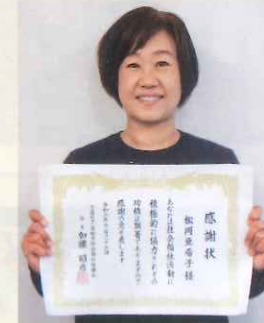 感謝状
松岡亜希子様
あなたは社会福祉活動に
積極的に協力されその
功績は顕著でありますので
感謝の意を表します
会長 加藤昭彦